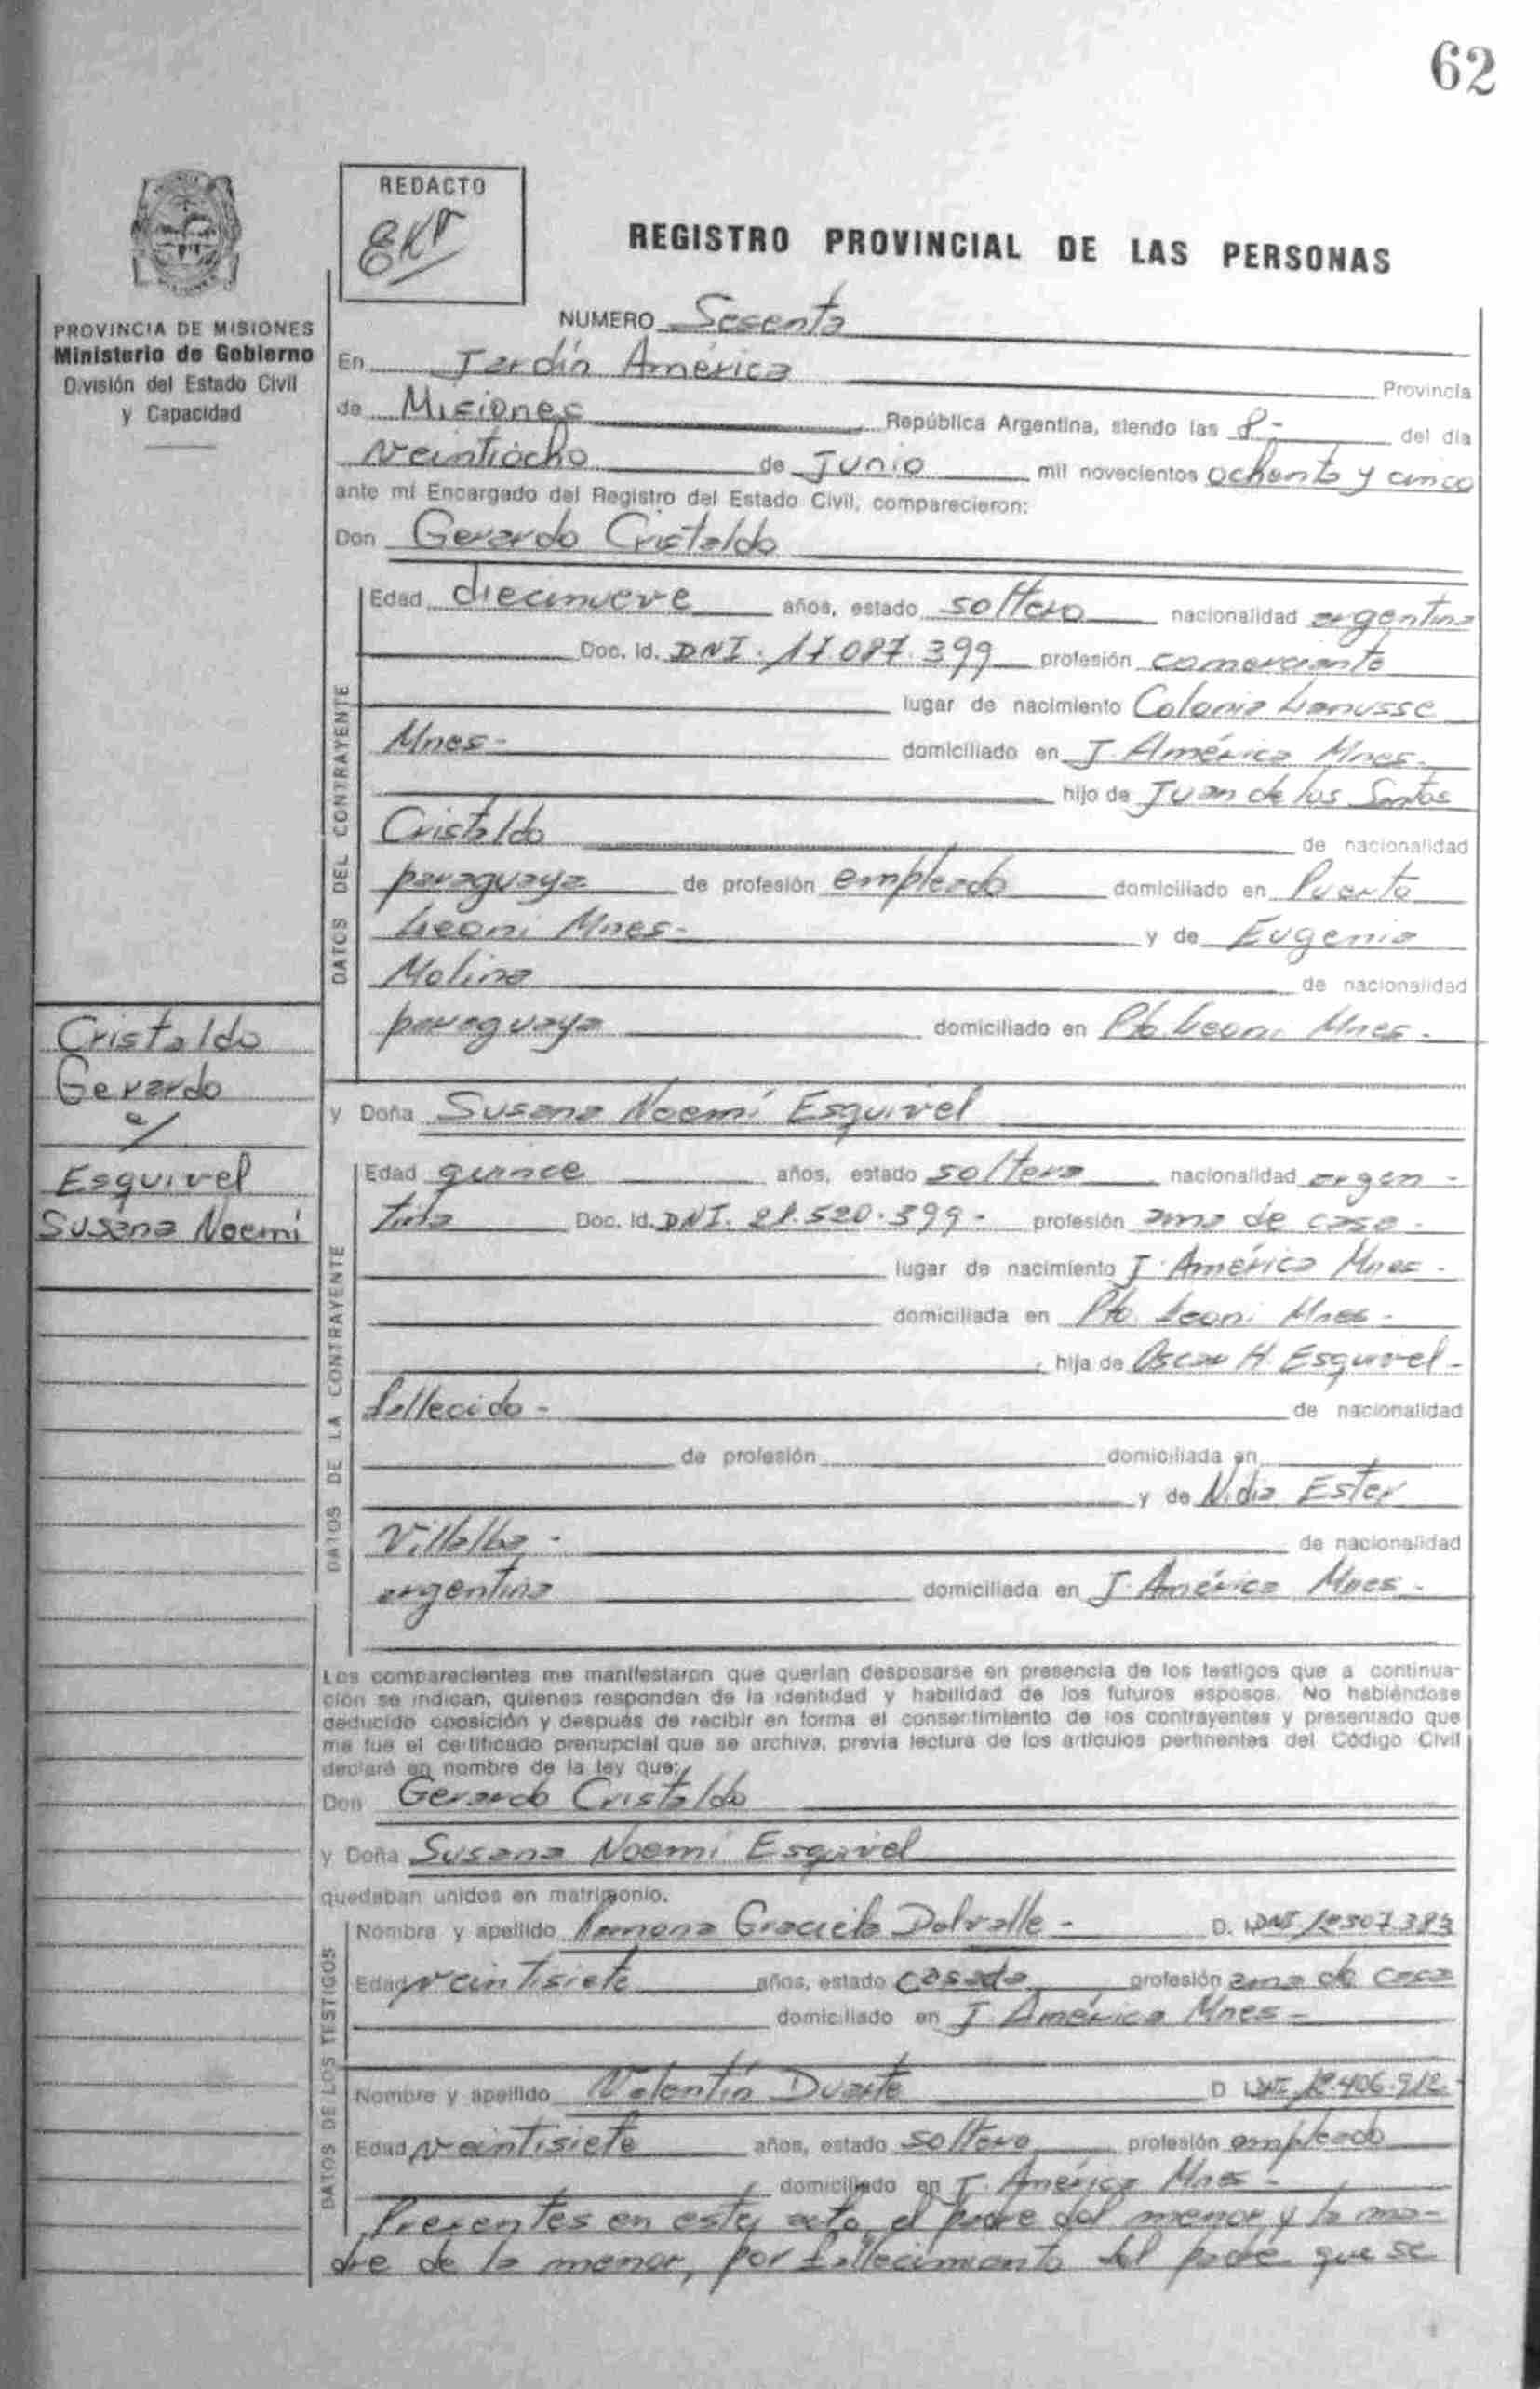 62
REDACTO
REGISTRO PROVINCIAL DE LAS PERSONAS
PROVINCIA DE MISIONES
Ministerio de Gobierno
División del Estado Civil
y Capacidad
NUMERO Sesenta
En Jardín América Provincia
de Misiones República Argentina, siendo las 8- del día
veintiocho de Junio mil novecientos ochenta y cinco
ante mí Encargado del Registro del Estado Civil, comparecieron:
Don Gerardo Cristaldo
DATOS DEL CONTRAYENTE
Edad diecinueve años, estado soltero nacionalidad argentina
Doc. Id. DNI. 17.087.399 profesión comerciante
lugar de nacimiento Colonia Lanusse
Mnes- domiciliado en J. América Mnes.
hijo de Juan de los Santos
Cristaldo de nacionalidad
paraguaya de profesión empleado domiciliado en Puerto
Leoni Mnes- y de Eugenia
Molina de nacionalidad
paraguaya domiciliado en Pto. Leoni Mnes-
Cristaldo
Gerardo
c/
Esquivel
Susana Noemí
y Doña Susana Noemí Esquivel
DATOS DE LA CONTRAYENTE
Edad quince años, estado soltera nacionalidad argen-
tina Doc. Id. DNI. 21.520.399- profesión ama de casa-
lugar de nacimiento J. América Mnes-
domiciliada en Pto. Leoni Mnes-
, hija de Oscar H. Esquivel-
fallecido- de nacionalidad
de profesión domiciliada en
y de Nidia Ester
Villalba- de nacionalidad
argentina domiciliada en J. América Mnes-
Los comparecientes me manifestaron que querían desposarse en presencia de los testigos que a continua-
ción se indican, quienes responden de la identidad y habilidad de los futuros esposos. No habiéndose
deducido oposición y después de recibir en forma el consentimiento de los contrayentes y presentado que
me fue el certificado prenupcial que se archiva, previa lectura de los artículos pertinentes del Código Civil
declaré en nombre de la ley que:
Don Gerardo Cristaldo
y Doña Susana Noemí Esquivel
quedaban unidos en matrimonio.
DATOS DE LOS TESTIGOS
Nombre y apellido Ramona Graciela Dalvalle- D. I. DNI 12.307.383
Edad veintisiete años, estado casada profesión ama de casa
domiciliado en J. América Mnes-
Nombre y apellido Valentín Duarte D. I. DNI 12.406.912
Edad veintisiete años, estado soltero profesión empleado
domiciliado en J. América Mnes-
Presentes en este acto, el padre del menor y la ma-
dre de la menor, por fallecimiento del padre que se